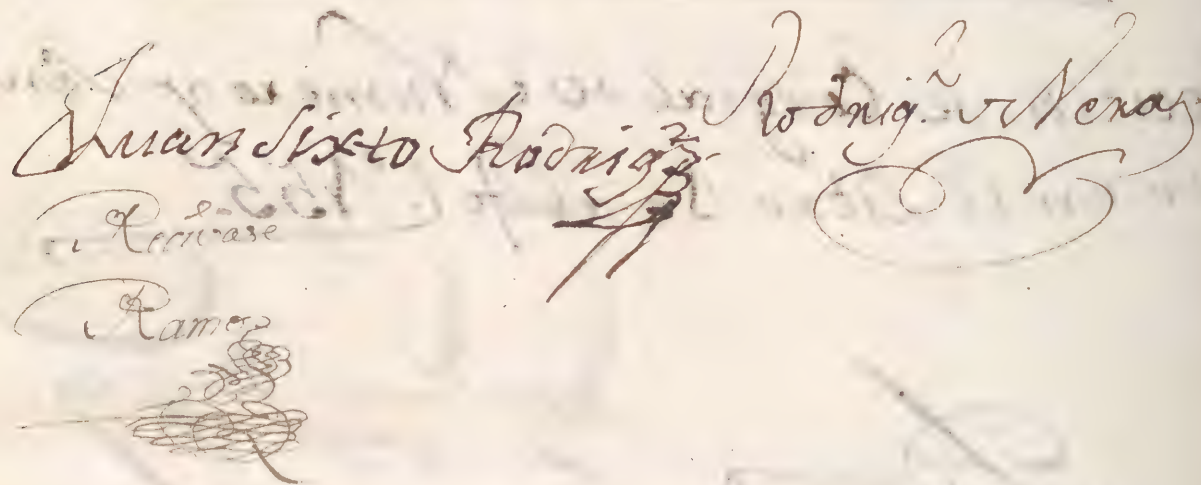 Juan Sixto Rodrigz Rodrig.z Vera
Recivase
Ramos